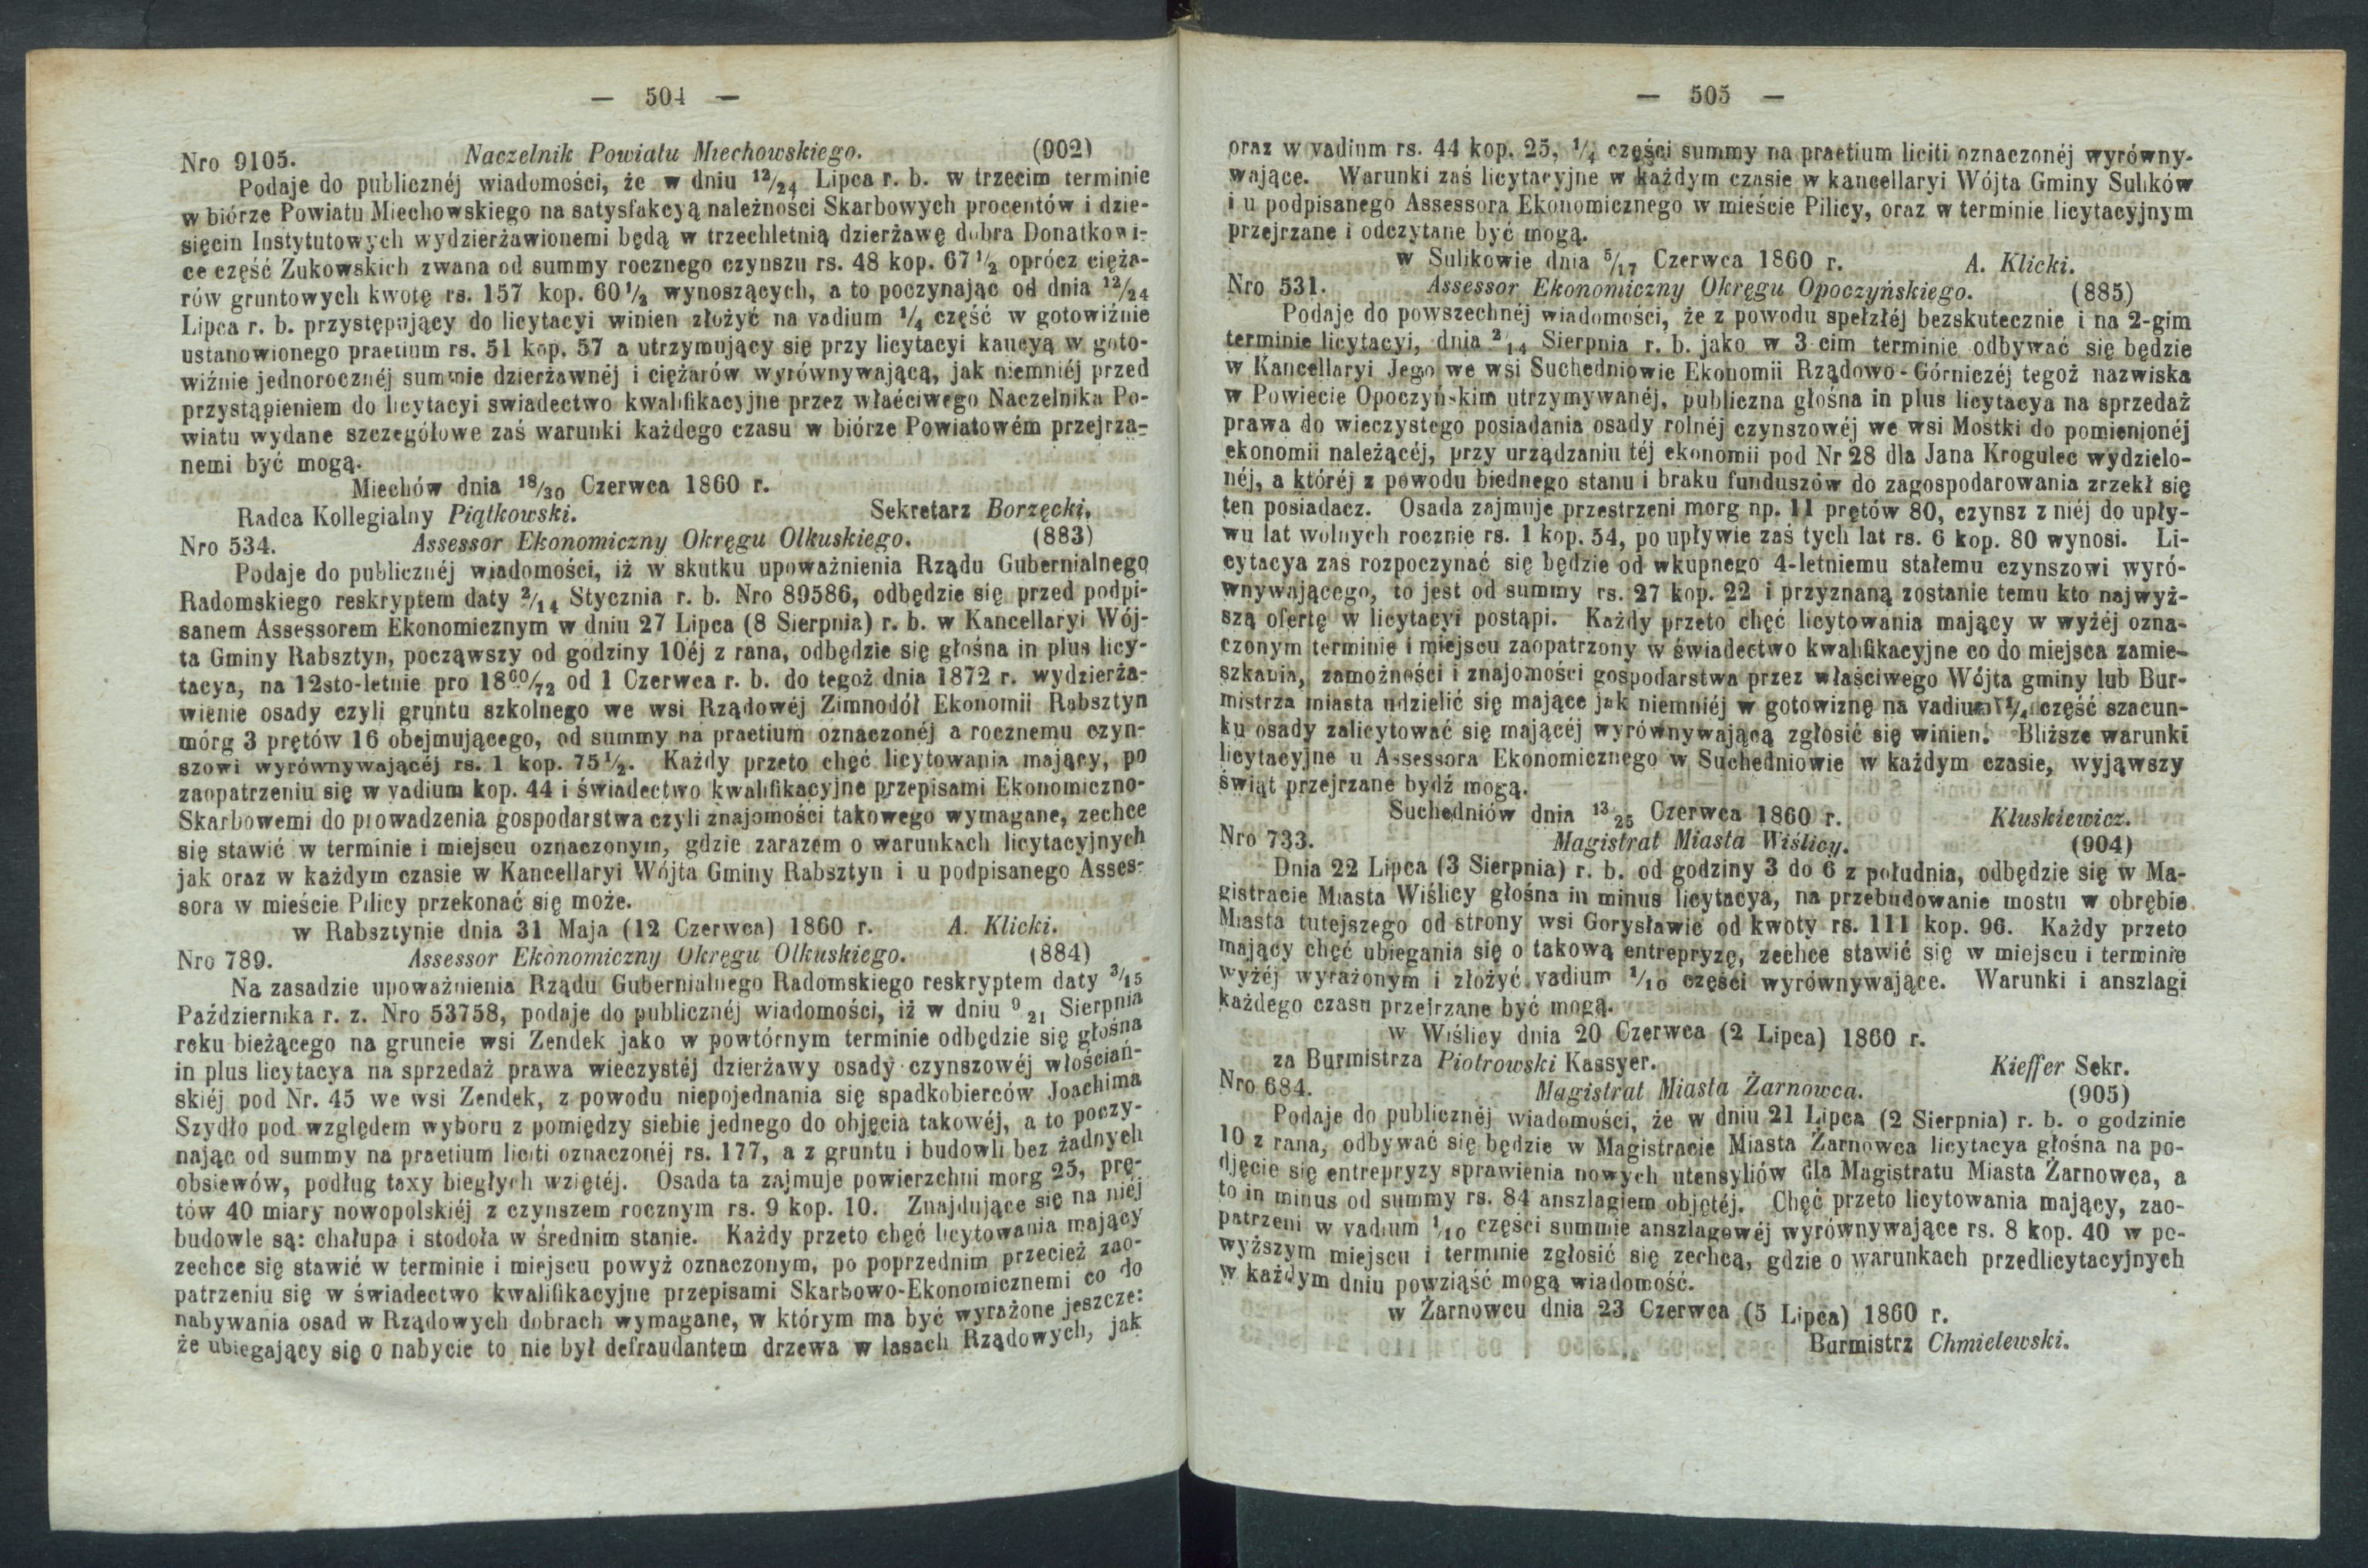 — 504 —
Nro 9105. Naczelnik Powiatu Miechowskiego. (902)
Podaje do publicznéj wiadomości, że w dniu 12/24 Lipca r. b. w trzecim terminie
w biórze Powiatu Miechowskiego na satysfakcyą należności Skarbowych procentów i dzie-
sięcin Instytutowych wydzierżawionemi będą w trzechletnią dzierżawę dobra Donatkowi-
ce część Zukowskich zwana od summy rocznego czynszu rs. 48 kop. 67 1/2 oprócz cięża-
rów gruntowych kwotę rs. 157 kop. 60 1/2 wynoszących, a to poczynając od dnia 12/24
Lipca r. b. przystępujący do licytacyi winien złożyć na vadium 1/4 część w gotowiźnie
ustanowionego praetium rs. 51 kop. 57 a utrzymujący się przy licytacyi kaucyą w goto-
wiźnie jednorocznéj summie dzierżawnéj i ciężarów wyrównywającą, jak niemniéj przed
przystąpieniem do licytacyi swiadectwo kwalifikacyjne przez właéciwego Naczelnika Po-
wiatu wydane szczegółowe zaś warunki każdego czasu w biórze Powiatowém przejrza-
nemi być mogą.
Miechów dnia 18/30 Czerwca 1860 r.
Radca Kollegialny Piątkowski. Sekretarz Borzęcki.
Nro 534. Assessor Ekonomiczny Okręgu Olkuskiego. (883)
Podaje do publicznéj wiadomości, iż w skutku upoważnienia Rządu Gubernialnego
Radomskiego reskryptem daty 2/14 Stycznia r. b. Nro 89586, odbędzie się przed podpi-
sanem Assessorem Ekonomicznym w dniu 27 Lipca (8 Sierpnia) r. b. w Kancellaryi Wój-
ta Gminy Rabsztyn, począwszy od godziny 10éj z rana, odbędzie się głośna in plus licy-
tacya, na 12sto-letnie pro 1860/72 od 1 Czerwca r. b. do tegoż dnia 1872 r. wydzierża-
wienie osady czyli gruntu szkolnego we wsi Rządowéj Zimnodół Ekonomii Rabsztyn
mórg 3 prętów 16 obejmującego, od summy na praetium oznaczonéj a rocznemu czyn-
szowi wyrównywającéj rs. 1 kop. 75 1/2. Każdy przeto chęć licytowania mający, po
zaopatrzeniu się w vadium kop. 44 i świadectwo kwalifikacyjne przepisami Ekonomiczno-
Skarbowemi do prowadzenia gospodarstwa czyli znajomości takowego wymagane, zechce
się stawić w terminie i miejscu oznaczonym, gdzie zarazem o warunkach licytacyjnych
jak oraz w każdym czasie w Kancellaryi Wójta Gminy Rabsztyn i u podpisanego Asses-
sora w mieście Pilicy przekonać się może.
w Rabsztynie dnia 31 Maja (12 Czerwca) 1860 r. A. Klicki.
Nro 789. Assessor Ekonomiczny Okręgu Olkuskiego. (884)
Na zasadzie upoważnienia Rządu Gubernialnego Radomskiego reskryptem daty 3/15
Października r. z. Nro 53758, podaje do publicznéj wiadomości, iż w dniu 9/21 Sierpnia
roku bieżącego na gruncie wsi Zendek jako w powtórnym terminie odbędzie się głośna
in plus licytacya na sprzedaż prawa wieczystéj dzierżawy osady czynszowéj włościań-
skiéj pod Nr. 45 we wsi Zendek, z powodu niepojednania się spadkobierców Joachima
Szydło pod względem wyboru z pomiędzy siebie jednego do objęcia takowéj, a to poczy-
nając od summy na praetium liciti oznaczonéj rs. 177, a z gruntu i budowli bez żadnych
obsiewów, podług taxy biegłych wziętéj. Osada ta zajmuje powierzchni morg 25, prę-
tów 40 miary nowopolskiéj z czynszem rocznym rs. 9 kop. 10. Znajdujące się na niéj
budowle są: chałupa i stodoła w średnim stanie. Każdy przeto chęć licytowania mający
zechce się stawić w terminie i miejscu powyż oznaczonym, po poprzednim przecież zao-
patrzeniu się w świadectwo kwalifikacyjne przepisami Skarbowo-Ekonomicznemi co do
nabywania osad w Rządowych dobrach wymagane, w którym ma być wyrażone jeszcze:
że ubiegający się o nabycie to nie był defraudantem drzewa w lasach Rządowych, jak
— 505 —
oraz w vadium rs. 44 kop. 25, 1/4 części summy na praetium liciti oznaczonéj wyrówny-
wające. Warunki zaś licytacyjne w każdym czasie w kancellaryi Wójta Gminy Sulików
i u podpisanego Assessora Ekonomicznego w mieście Pilicy, oraz w terminie licytacyjnym
przejrzane i odczytane być mogą.
w Sulikowie dnia 5/17 Czerwca 1860 r. A. Klicki.
Nro 531. Assessor Ekonomiczny Okręgu Opoczyńskiego. (885)
Podaje do powszechnéj wiadomości, że z powodu spełzłéj bezskutecznie i na 2-gim
terminie licytacyi, dnia 2/14 Sierpnia r. b. jako w 3 cim terminie odbywać się będzie
w Kancellaryi Jego we wsi Suchedniowie Ekonomii Rządowo-Górniczéj tegoż nazwiska
w Powiecie Opoczyńskim utrzymywanéj, publiczna głośna in plus licytacya na sprzedaż
prawa do wieczystego posiadania osady rolnéj czynszowéj we wsi Mostki do pomienionéj
ekonomii należącéj, przy urządzaniu téj ekonomii pod Nr 28 dla Jana Krogulec wydzielo-
néj, a któréj z powodu biednego stanu i braku funduszów do zagospodarowania zrzekł się
ten posiadacz. Osada zajmuje przestrzeni morg np. 11 prętów 80, czynsz z niéj do upły-
wu lat wolnych rocznie rs. 1 kop. 54, po upływie zaś tych lat rs. 6 kop. 80 wynosi. Li-
cytacya zas rozpoczynać się będzie od wkupnego 4-letniemu stałemu czynszowi wyró-
wnywającego, to jest od summy rs. 27 kop. 22 i przyznaną zostanie temu kto najwyż-
szą ofertę w licytacyi postąpi. Każdy przeto chęć licytowania mający w wyżéj ozna-
czonym terminie i miejscu zaopatrzony w świadectwo kwalifikacyjne co do miejsca zamie-
szkania, zamożności i znajomości gospodarstwa przez właściwego Wójta gminy lub Bur-
mistrza miasta udzielić się mające jak niemniéj w gotowiznę na vadium 1/4 część szacun-
ku osady zalicytować się mającéj wyrównywającą zgłosić się winien. Bliższe warunki
licytacyjne u Assessora Ekonomicznego w Suchedniowie w każdym czasie, wyjąwszy
świąt przejrzane bydź mogą.
Suchedniów dnia 13/25 Czerwca 1860 r. Kluskiewicz.
Nro 733. Magistrat Miasta Wiślicy. (904)
Dnia 22 Lipca (3 Sierpnia) r. b. od godziny 3 do 6 z południa, odbędzie się w Ma-
gistracie Miasta Wiślicy głośna in minus licytacya, na przebudowanie mostu w obrębie
Miasta tutejszego od strony wsi Gorysławic od kwoty rs. 111 kop. 96. Każdy przeto
mający chęć ubiegania się o takową entrepryzę, zechce stawić się w miejscu i terminie
wyżéj wyrażonym i złożyć vadium 1/10 części wyrównywające. Warunki i anszlagi
każdego czasu przejrzane być mogą.
w Wiślicy dnia 20 Czerwca (2 Lipca) 1860 r.
za Burmistrza Piotrowski Kassyer. Kieffer Sekr.
Nro 684. Magistrat Miasta Żarnowca. (905)
Podaje do publicznéj wiadomości, że w dniu 21 Lipca (2 Sierpnia) r. b. o godzinie
10 z rana, odbywać się będzie w Magistracie Miasta Żarnowca licytacya głośna na po-
djęcie się entrepryzy sprawienia nowych utensyliów dla Magistratu Miasta Żarnowca, a
to in minus od summy rs. 84 anszlagiem objętéj. Chęć przeto licytowania mający, zao-
patrzeni w vadium 1/10 części summie anszlagowéj wyrównywające rs. 8 kop. 40 w po-
wyższym miejscu i terminie zgłosić się zechcą, gdzie o warunkach przedlicytacyjnych
w każdym dniu powziąść mogą wiadomość.
w Żarnowcu dnia 23 Czerwca (5 Lipca) 1860 r.
Burmistrz Chmielewski.